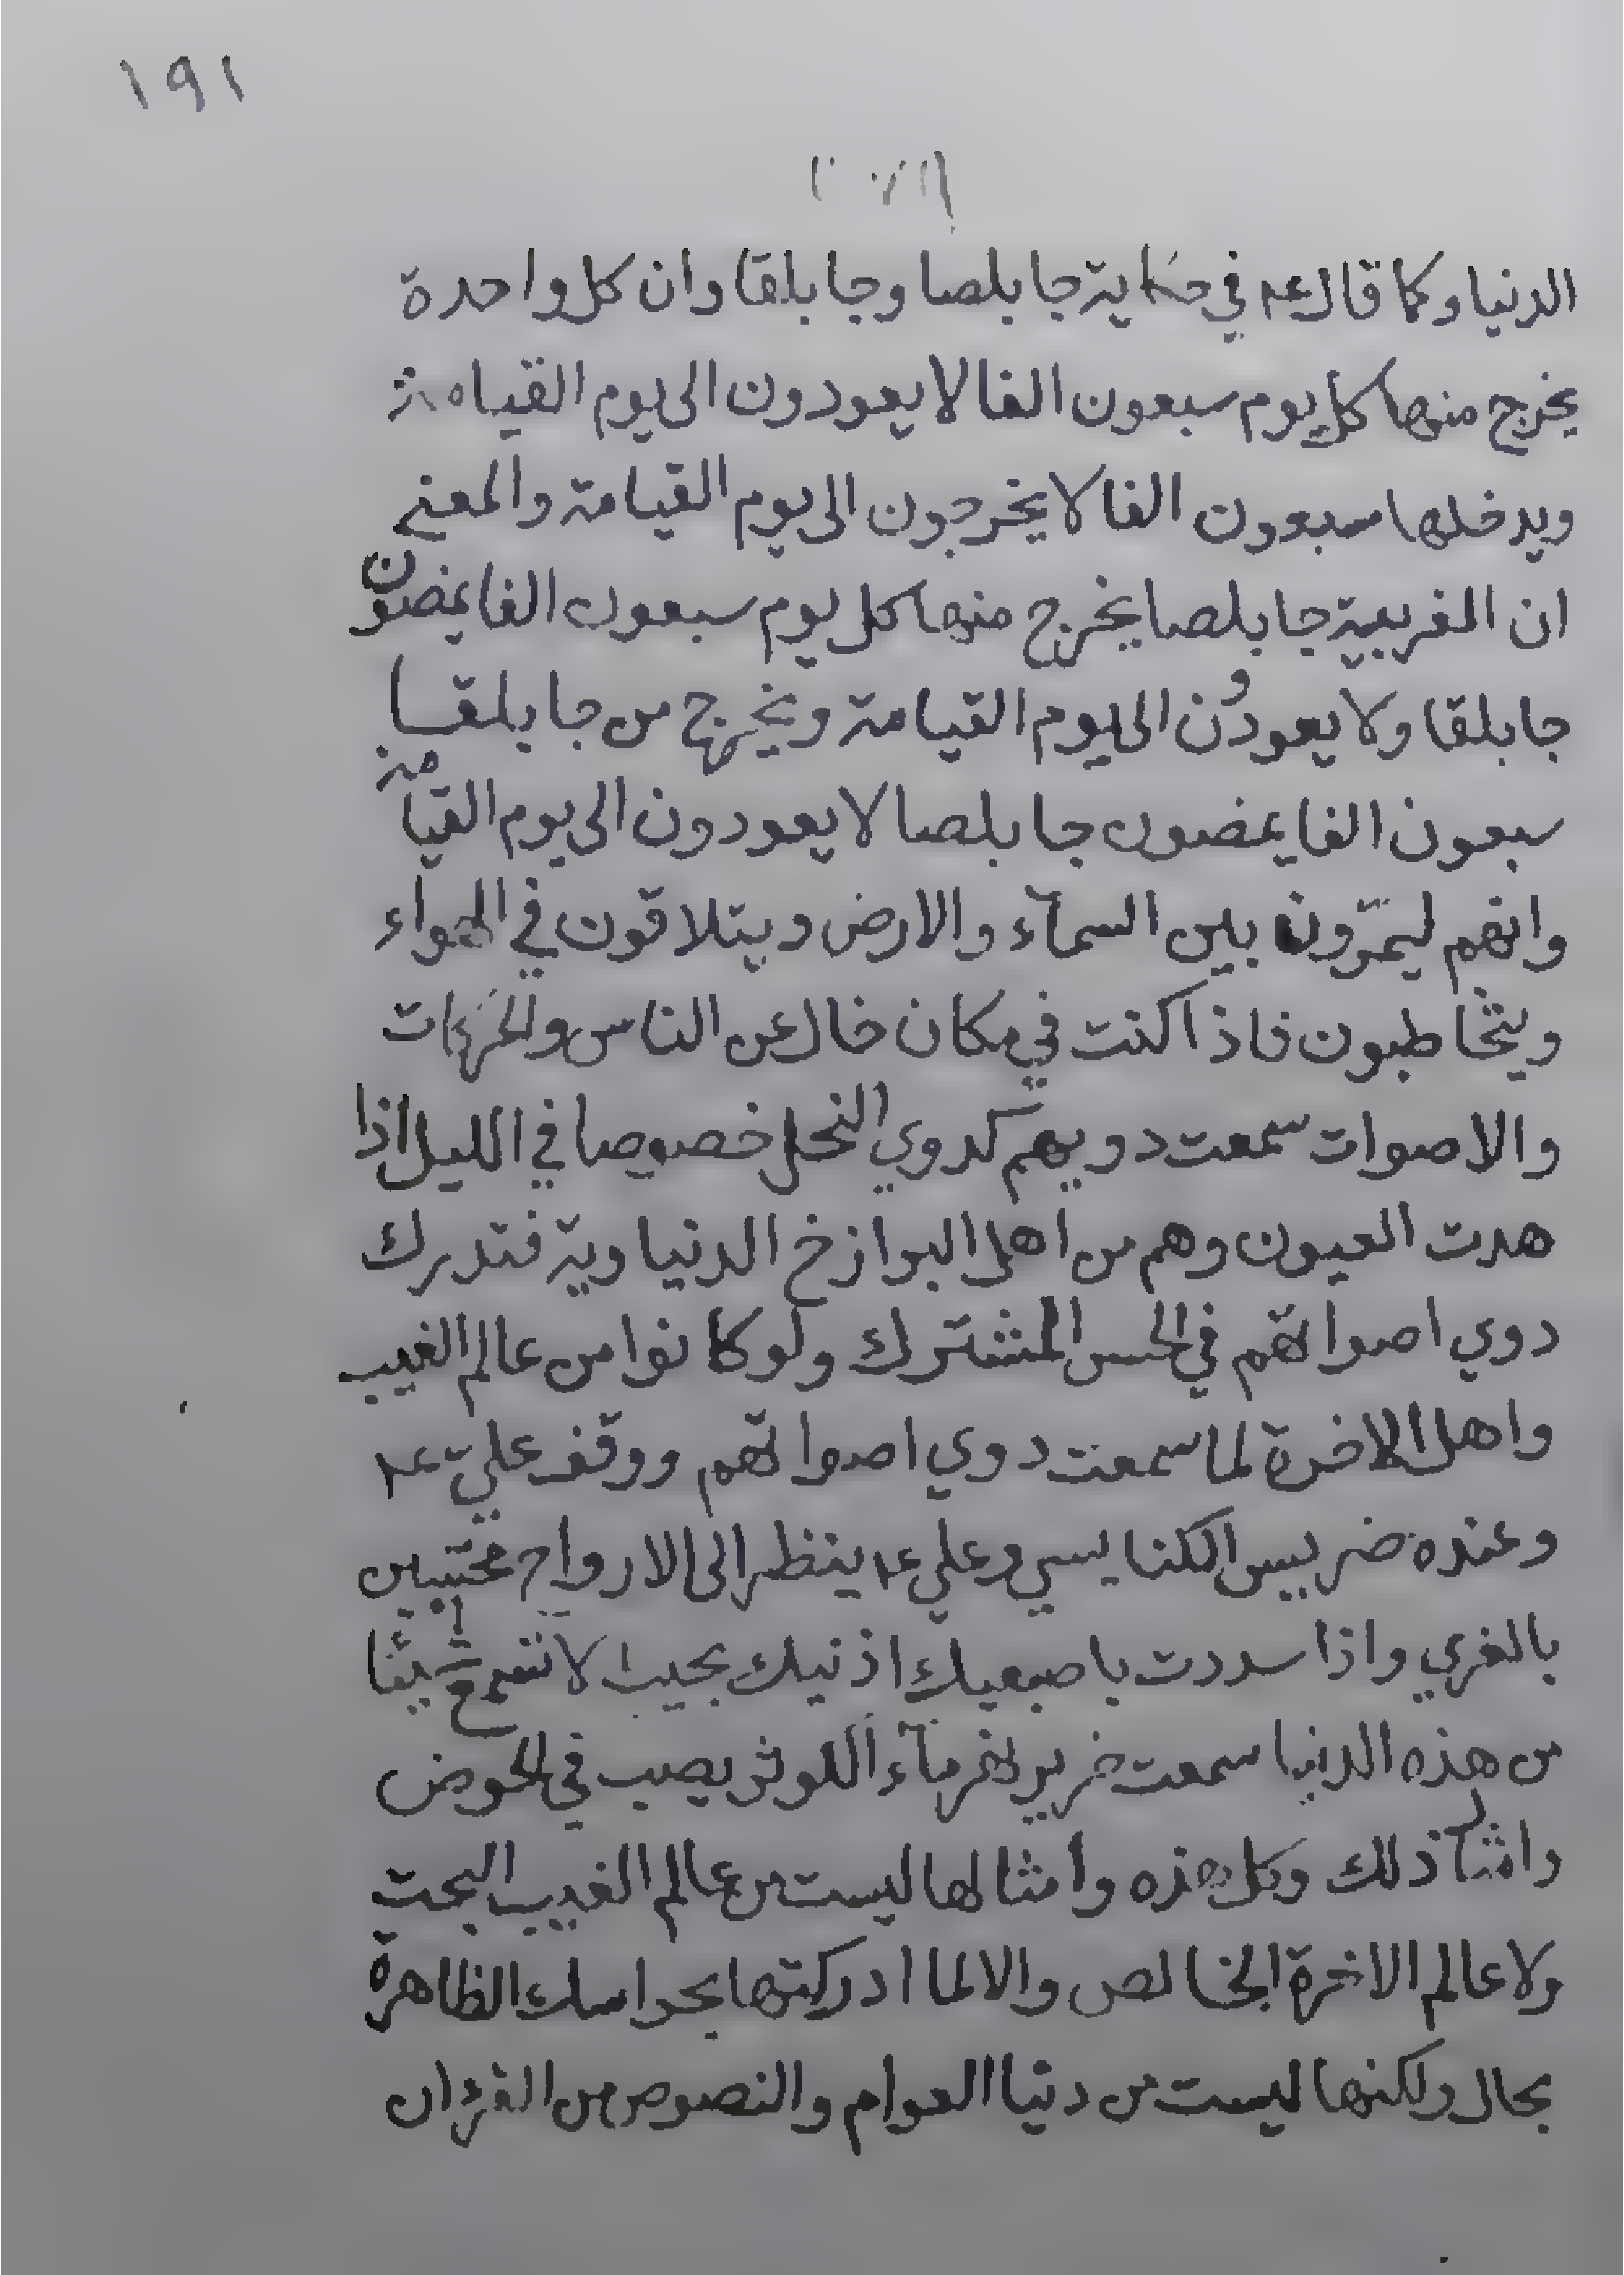 ١٩١
الدنيا وكما قال عم في حكاية جابلصا وجابلقا وان كل واحدة
يخرج منها كل يوم سبعون الفا لا يعودون الى يوم القيامة
ويدخلها سبعون الفا لا يخرجون الى يوم القيامة والمعنى
ان الغربية جابلصا يخرج منها كل يوم سبعون الفا يمضون
جابلقا ولا يعودون الى يوم القيامة ويخرج من جابلقا
سبعون الفا يمضون جابلصا لا يعودون الى يوم القيامة
وانهم ليمرّون بين السمآء والارض ويتلاقون في الهواء
ويتخاطبون فاذا كنت في مكان خال عن الناس والحركات
والاصوات سمعت دويهم كدوي النحل خصوصا في الليل اذا
هدت العيون وهم من اهل البرازخ الدنياوية فتدرك
دوي اصواتهم في الحس المشترك ولو كانوا من عالم الغيب
واهل الاخرة لما سمعت دوي اصواتهم ووقف عليّ عم
وعنده ضريس الكنايسي وعلي عم ينظر الى الارواح محتبين
بالغري واذا سددت باصبعيك اذنيك بحيث لا تسمع شيئا
من هذه الدنيا سمعت خرير نهر مآء الكوثر يصب في الحوض
وامثال ذلك وكل هذه وأمثالها ليست من عالم الغيب البحت
ولا عالم الاخرة الخالص والا لما ادركتها بحواسك الظاهرة
بحال ولكنها ليست من دنيا العوام والنصوص من القرءان